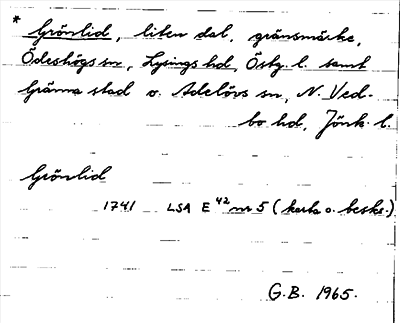 * Grönlid, liten dal, gränsmärke,
Ödeshögs sn, Lysings hd, Östg. l. samt
Gränna stad o. Adelövs sn, N. Ved-
bo hd, Jönk. l.
Grönlid
1741 LSA E 42 nr 5 (karta o. beskr.)
G.B. 1965.